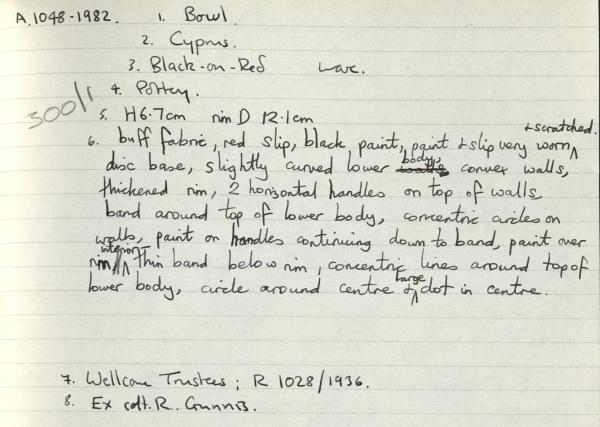 A.1048-1982. 1. Bowl
2. Cyprus.
3. Black-on-Red ware.
4. Pottery.
300/1
5. H 6.7cm rim D 12.1cm
6. buff fabric, red slip, black paint, paint & slip very worn & scratched.
disc base, slightly curved lower body, convex walls,
thickened rim, 2 horizontal handles on top of walls
band around top of lower body, concentric circles on
walls, paint on handles continuing down to band, paint over
rim // interior: Thin band below rim, concentric lines around top of
lower body, circle around centre & large dot in centre.
7. Wellcome Trustees; R 1028/1936.
8. Ex coll. R. Gunnis.